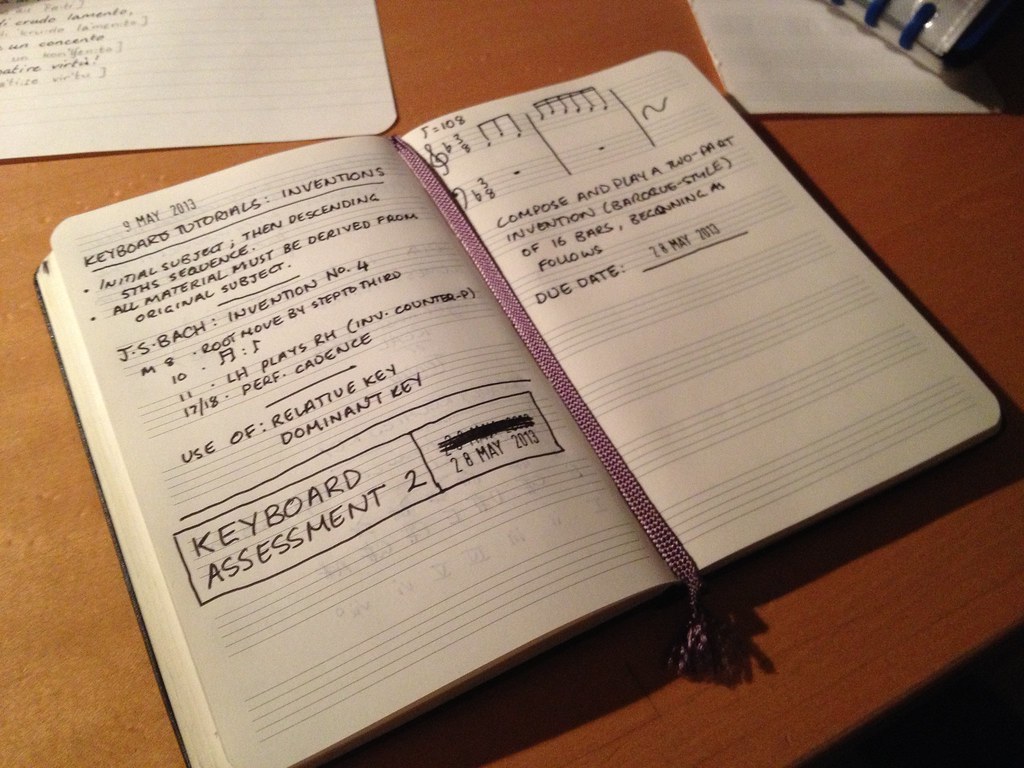 9 MAY 2013
KEYBOARD TUTORIALS: INVENTIONS
• INITIAL SUBJECT, THEN DESCENDING
5THS SEQUENCE.
• ALL MATERIAL MUST BE DERIVED FROM
ORIGINAL SUBJECT.
J.S. BACH: INVENTION No. 4
M 8 · ROOT MOVE BY STEP TO THIRD
10 ·
11 · LH PLAYS RH (INV. COUNTER-P)
17/18 · PERF. CADENCE
USE OF: RELATIVE KEY
DOMINANT KEY
KEYBOARD
ASSESSMENT 2
28 MAY 2013
♪=108
3
8
3
8
COMPOSE AND PLAY A TWO-PART
INVENTION (BAROQUE-STYLE)
OF 16 BARS, BEGINNING AS
FOLLOWS
DUE DATE: 28 MAY 2013
di crudo lamento,
un concento
virtù!